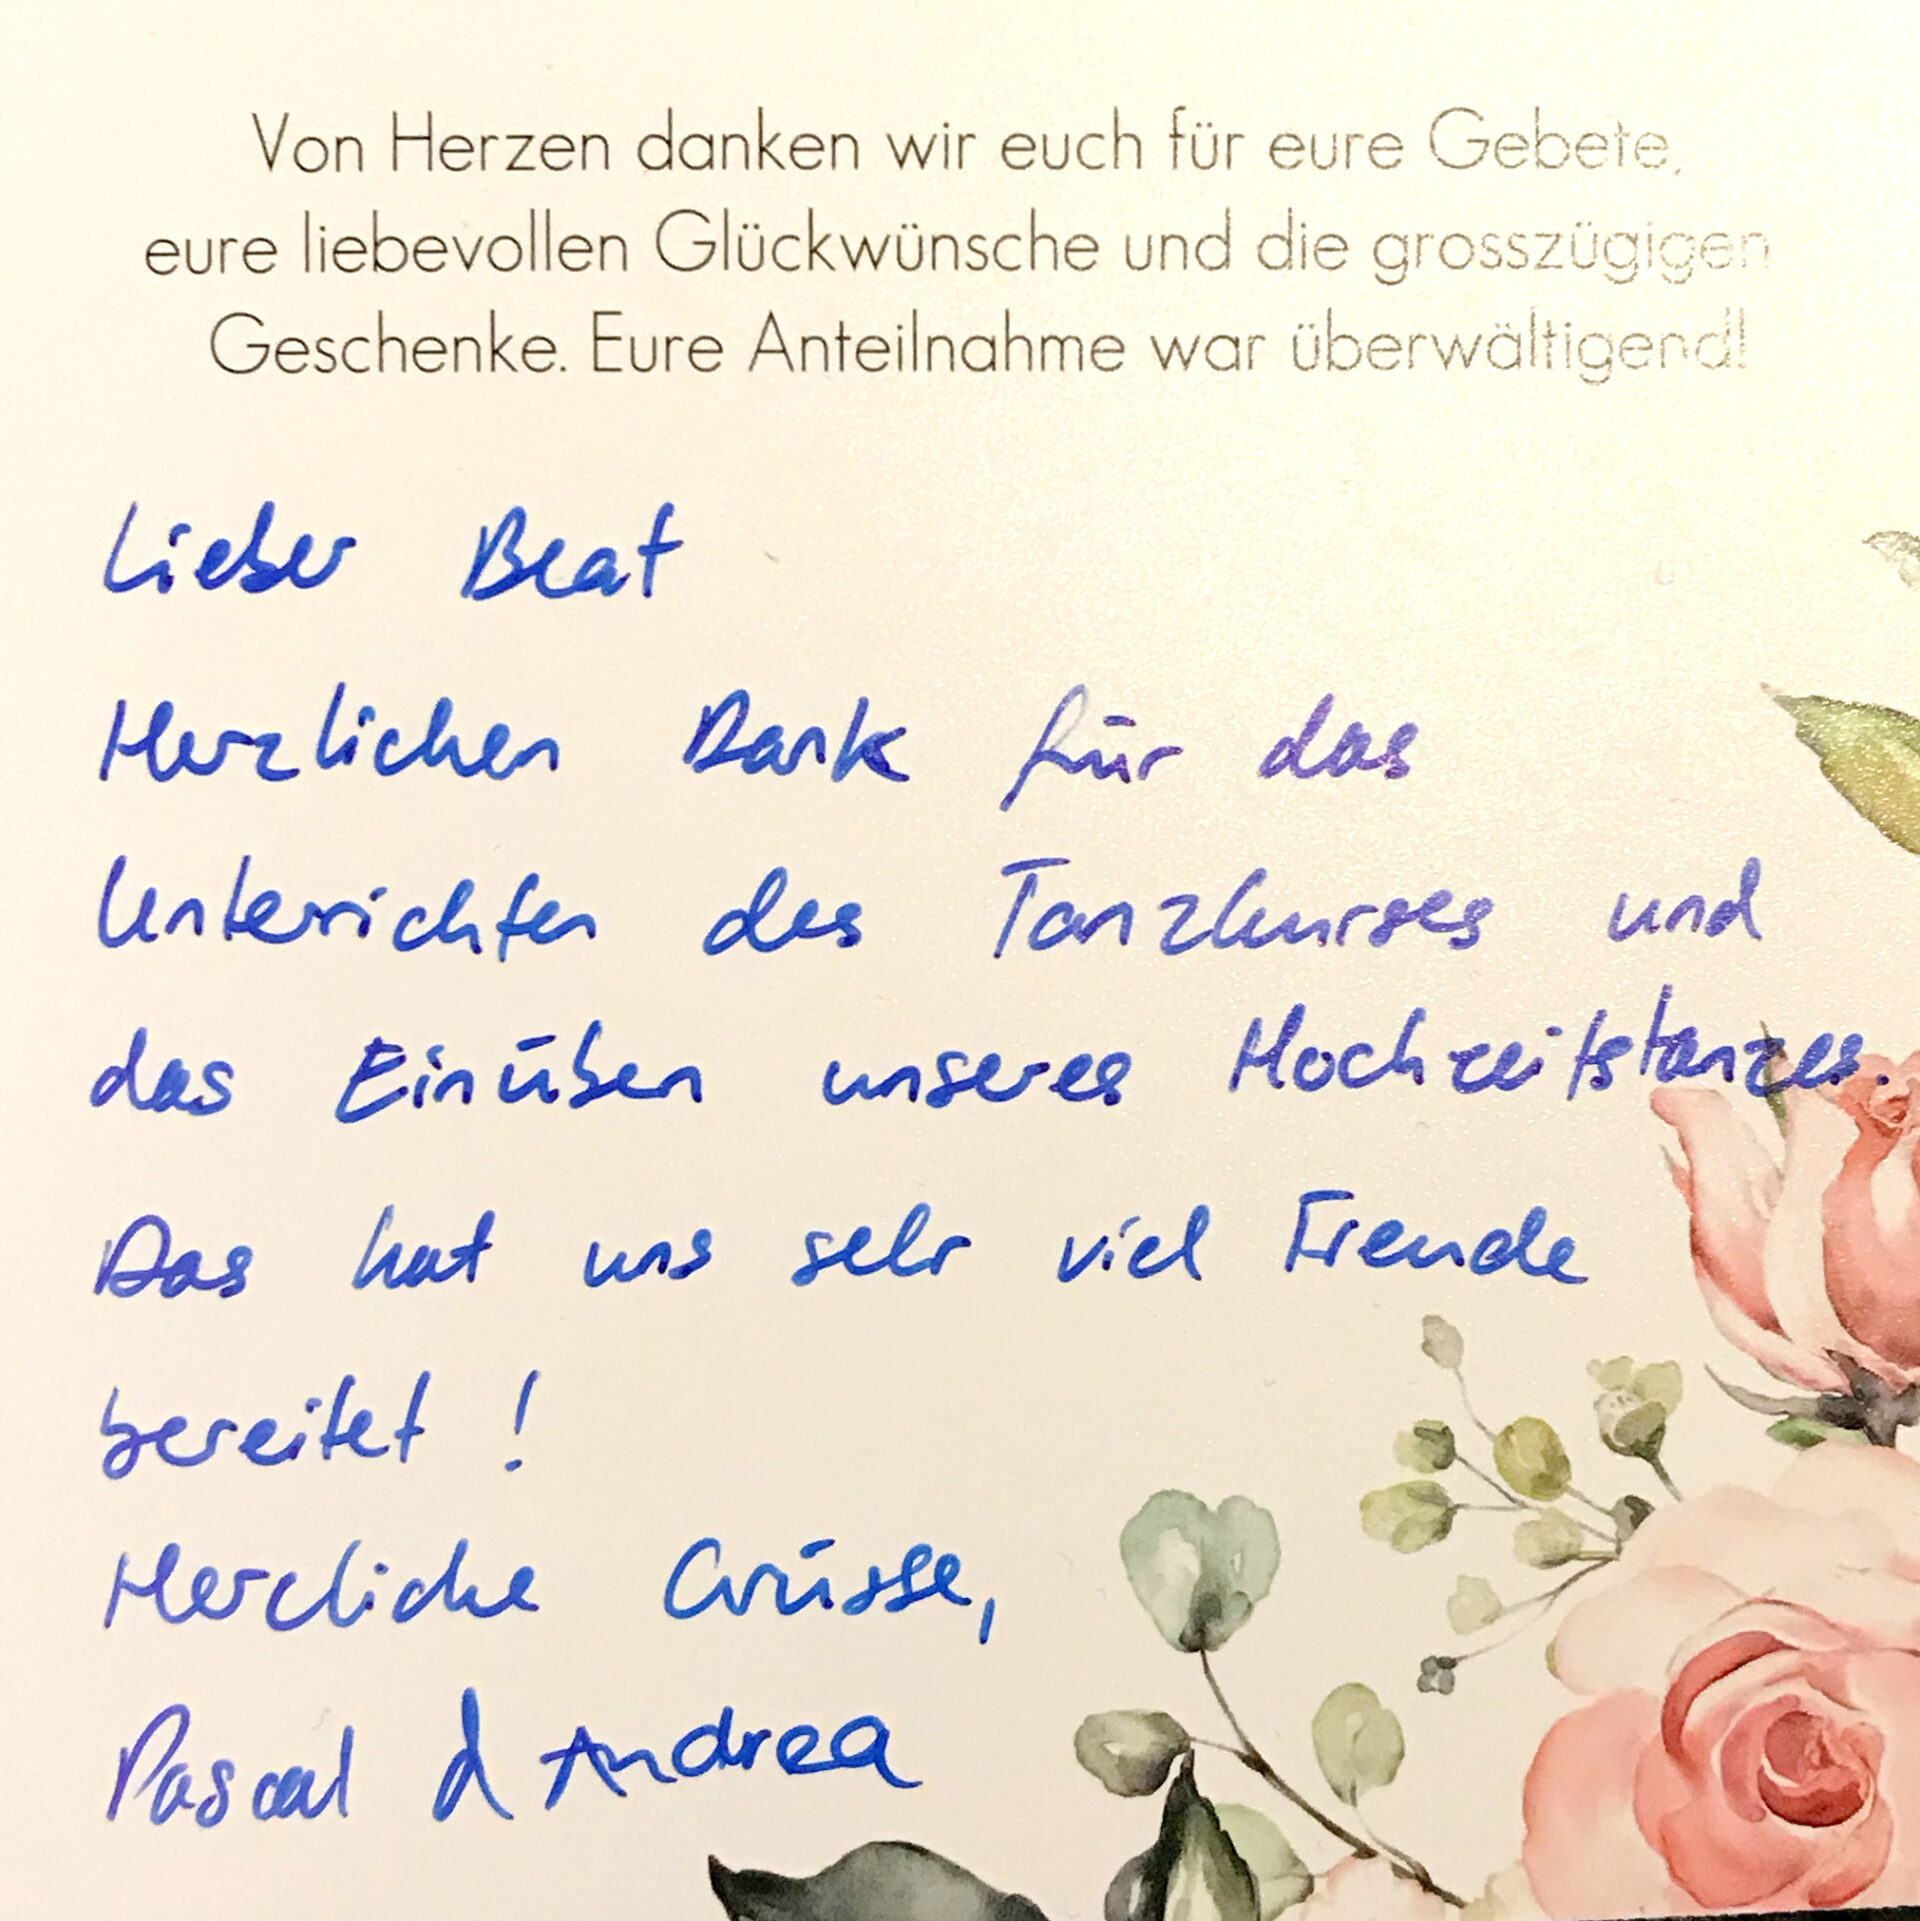 Von Herzen danken wir euch für eure Gebete,
eure liebevollen Glückwünsche und die grosszügigen
Geschenke. Eure Anteilnahme war überwältigend!
Lieber Beat
Herzlichen Dank für das
Unterrichten des Tanzkurses und
das Einüben unseres Hochzeitstanzes.
Das hat uns sehr viel Freude
bereitet !
Herzliche Grüsse,
Pascal & Andrea